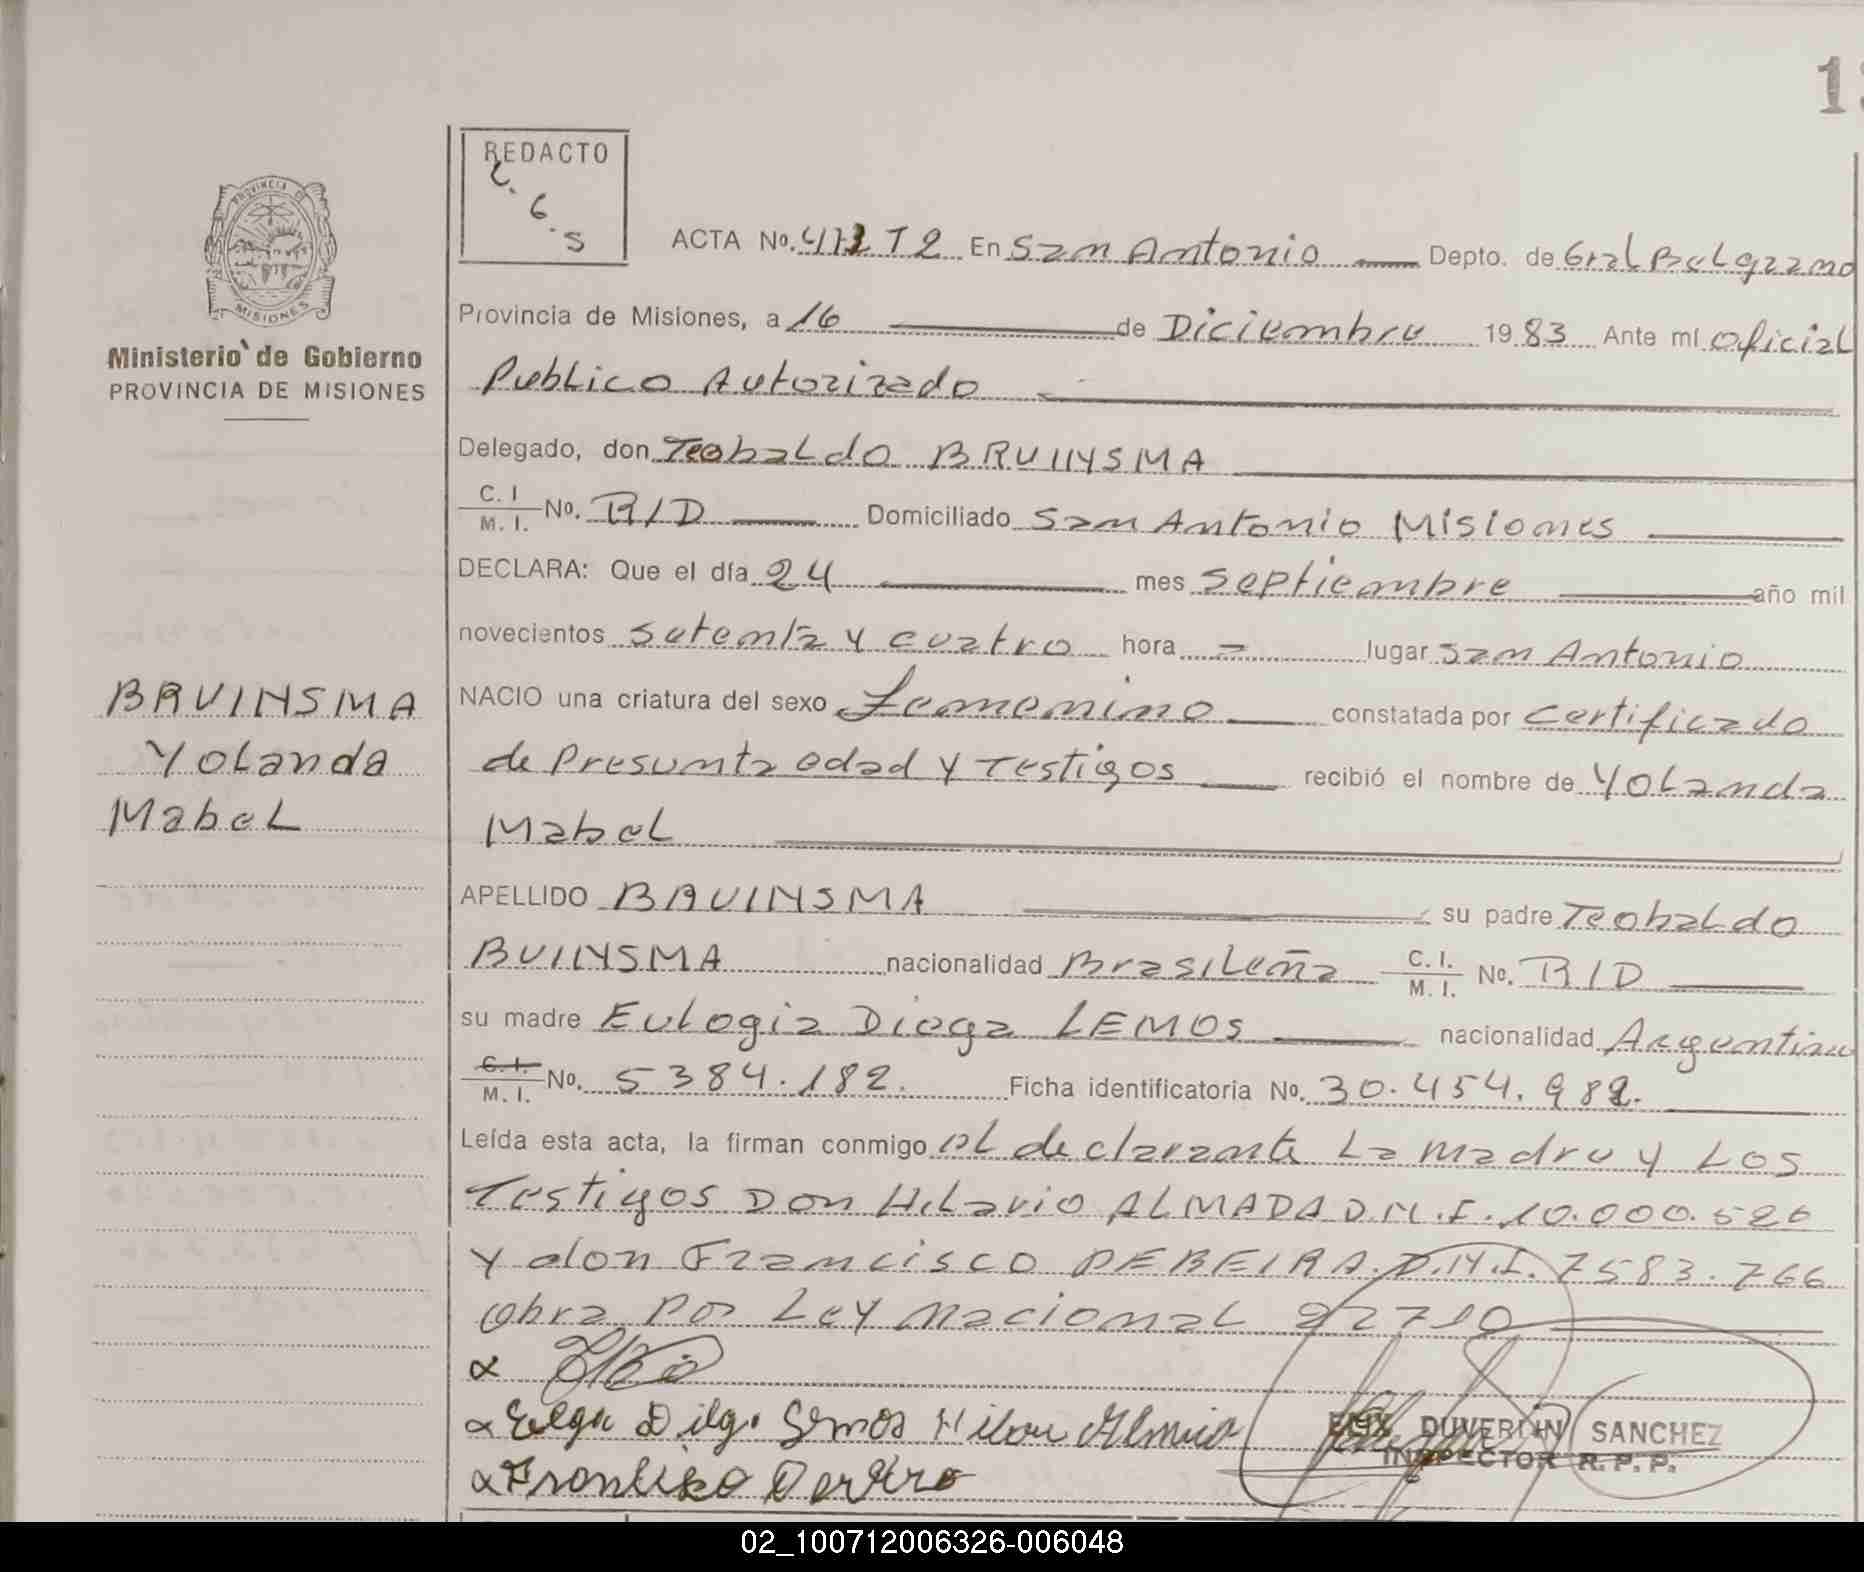 REDACTO
6
S
PROVINCIA DE
MISIONES
Ministerio de Gobierno
PROVINCIA DE MISIONES
ACTA No. T 2 En San Antonio Depto. de Gral Belgrano
Provincia de Misiones, a 16 de Diciembre 1983 Ante mí oficial
Publico Autorizado
Delegado, don Teobaldo BRUINSMA
C. I.
M. I. No. R/D Domiciliado San Antonio Misiones
DECLARA: Que el día 24 mes septiembre año mil
novecientos setenta y cuatro hora = lugar San Antonio
NACIO una criatura del sexo femenino constatada por certificado
de Presunta edad y Testigos recibió el nombre de Yolanda
Mabel
BRUINSMA
Yolanda
Mabel
APELLIDO BRUINSMA su padre Teobaldo
BUINSMA nacionalidad Brasileña C. I. M. I. No. R/D
su madre Eulogia Diega LEMOS nacionalidad Argentina
C. I.
M. I. No. 5384.182. Ficha identificatoria No. 30.454.982.
Leída esta acta, la firman conmigo el declarante La madre y Los
Testigos Don Hilario ALMADA D.N.I. 10.000.526
y don Francisco PEREIRA D.N.I. 7583.766
obra por Ley Nacional 22710
DUVERLIN SANCHEZ
INSPECTOR R. P. P.
02_100712006326-006048